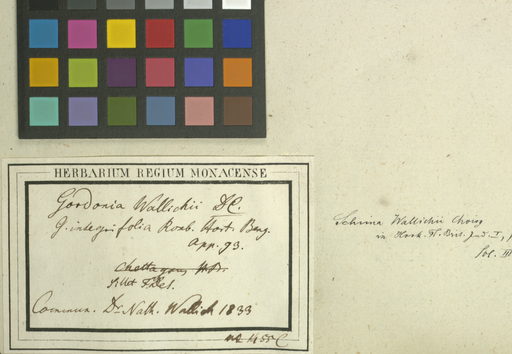 HERBARIUM REGIUM MONACENSE
Gordonia Wallichii DC.
G. integrifolia Roxb. Hort. Beng.
app. 93.
Sillet
Commun. Dr. Nath. Wallich 1833
Schima Wallichii Choisy
in Hook. Fl. Brit. Ind. I,